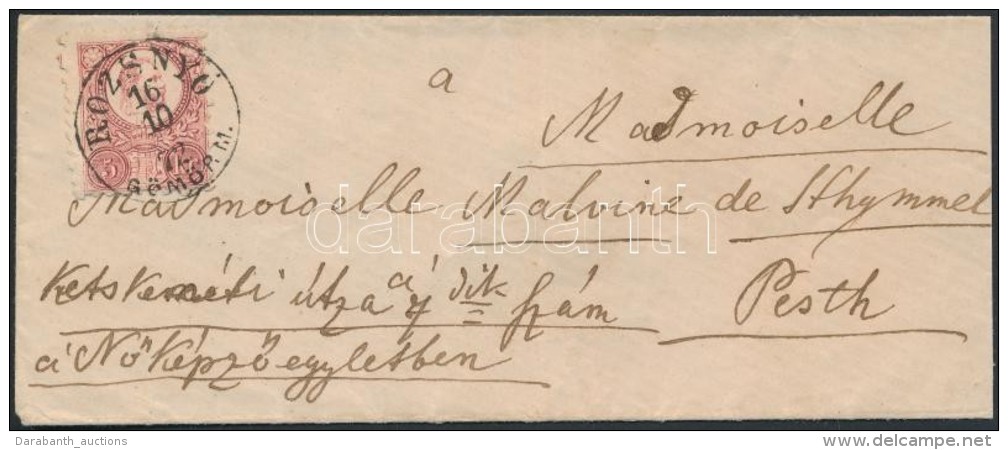 ROZSNYÓ
16
10
72
GÖMÖR M.
5
a
Madmoiselle
Madmoiselle Malvine de Sthymmel
Ketskeméti útza a 4 dik Szám Pesth
á Nőképző egyletben
darabanth
Darabanth_auctions
delcampe.net